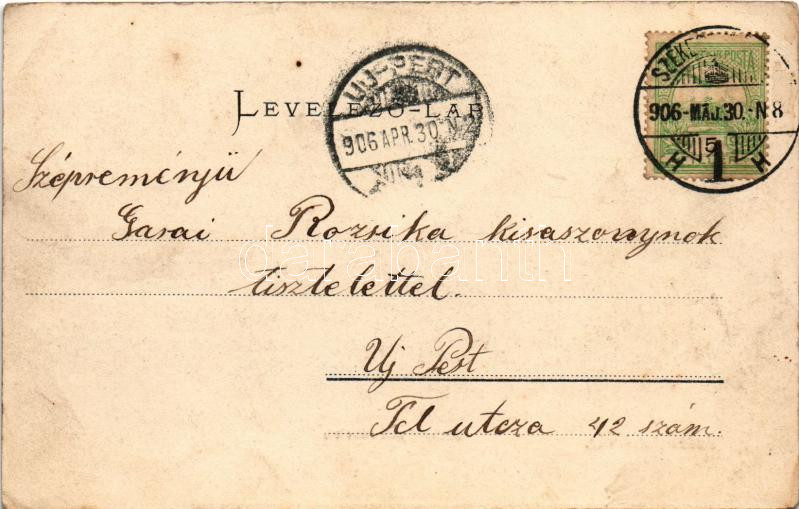 LEVELEZŐ-LAP
UJ-PEST
906 APR. 30. N2
SZÉKE
906-MÁJ.30.-N8
5
H 1 H
Szépreményű
Garai Rozsika kisaszonynok
tisztelettel.
Uj Pest
Fel utcza 42 szám.
darabanth